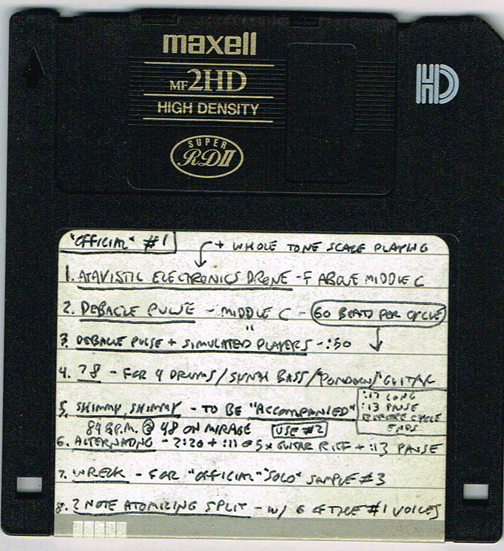 maxell
MF 2HD
HIGH DENSITY
SUPER
RD II
HD
"OFFICIAL" #1
+ WHOLE TONE SCALE PLAYING
1. ATAVISTIC ELECTRONICS DRONE - F ABOVE MIDDLE C
2. DEBACLE PULSE - MIDDLE C - 60 BEATS PER CYCLE
"
3. DEBACLE PULSE + SIMULATED PLAYERS - :50
4. 78 - FOR 4 DRUMS/SYNTH BASS/ GUITAR
:17 LONG
:13 PAUSE
BEFORE CYCLE
ENDS
5. SHIMMY SHIMMY - TO BE "ACCOMPANIED"
84 B.P.M. @ 48 ON MIRAGE USE #2
6. ALTERNATING - 2:20 + :11 @ 5X GUITAR RIFF + :13 PAUSE
7. WRECK - FOR "OFFICIAL" "SOLO" SAMPLE #3
8. 2 NOTE ATOMIZING SPLIT - W/ 6 OF THE #1 VOICES